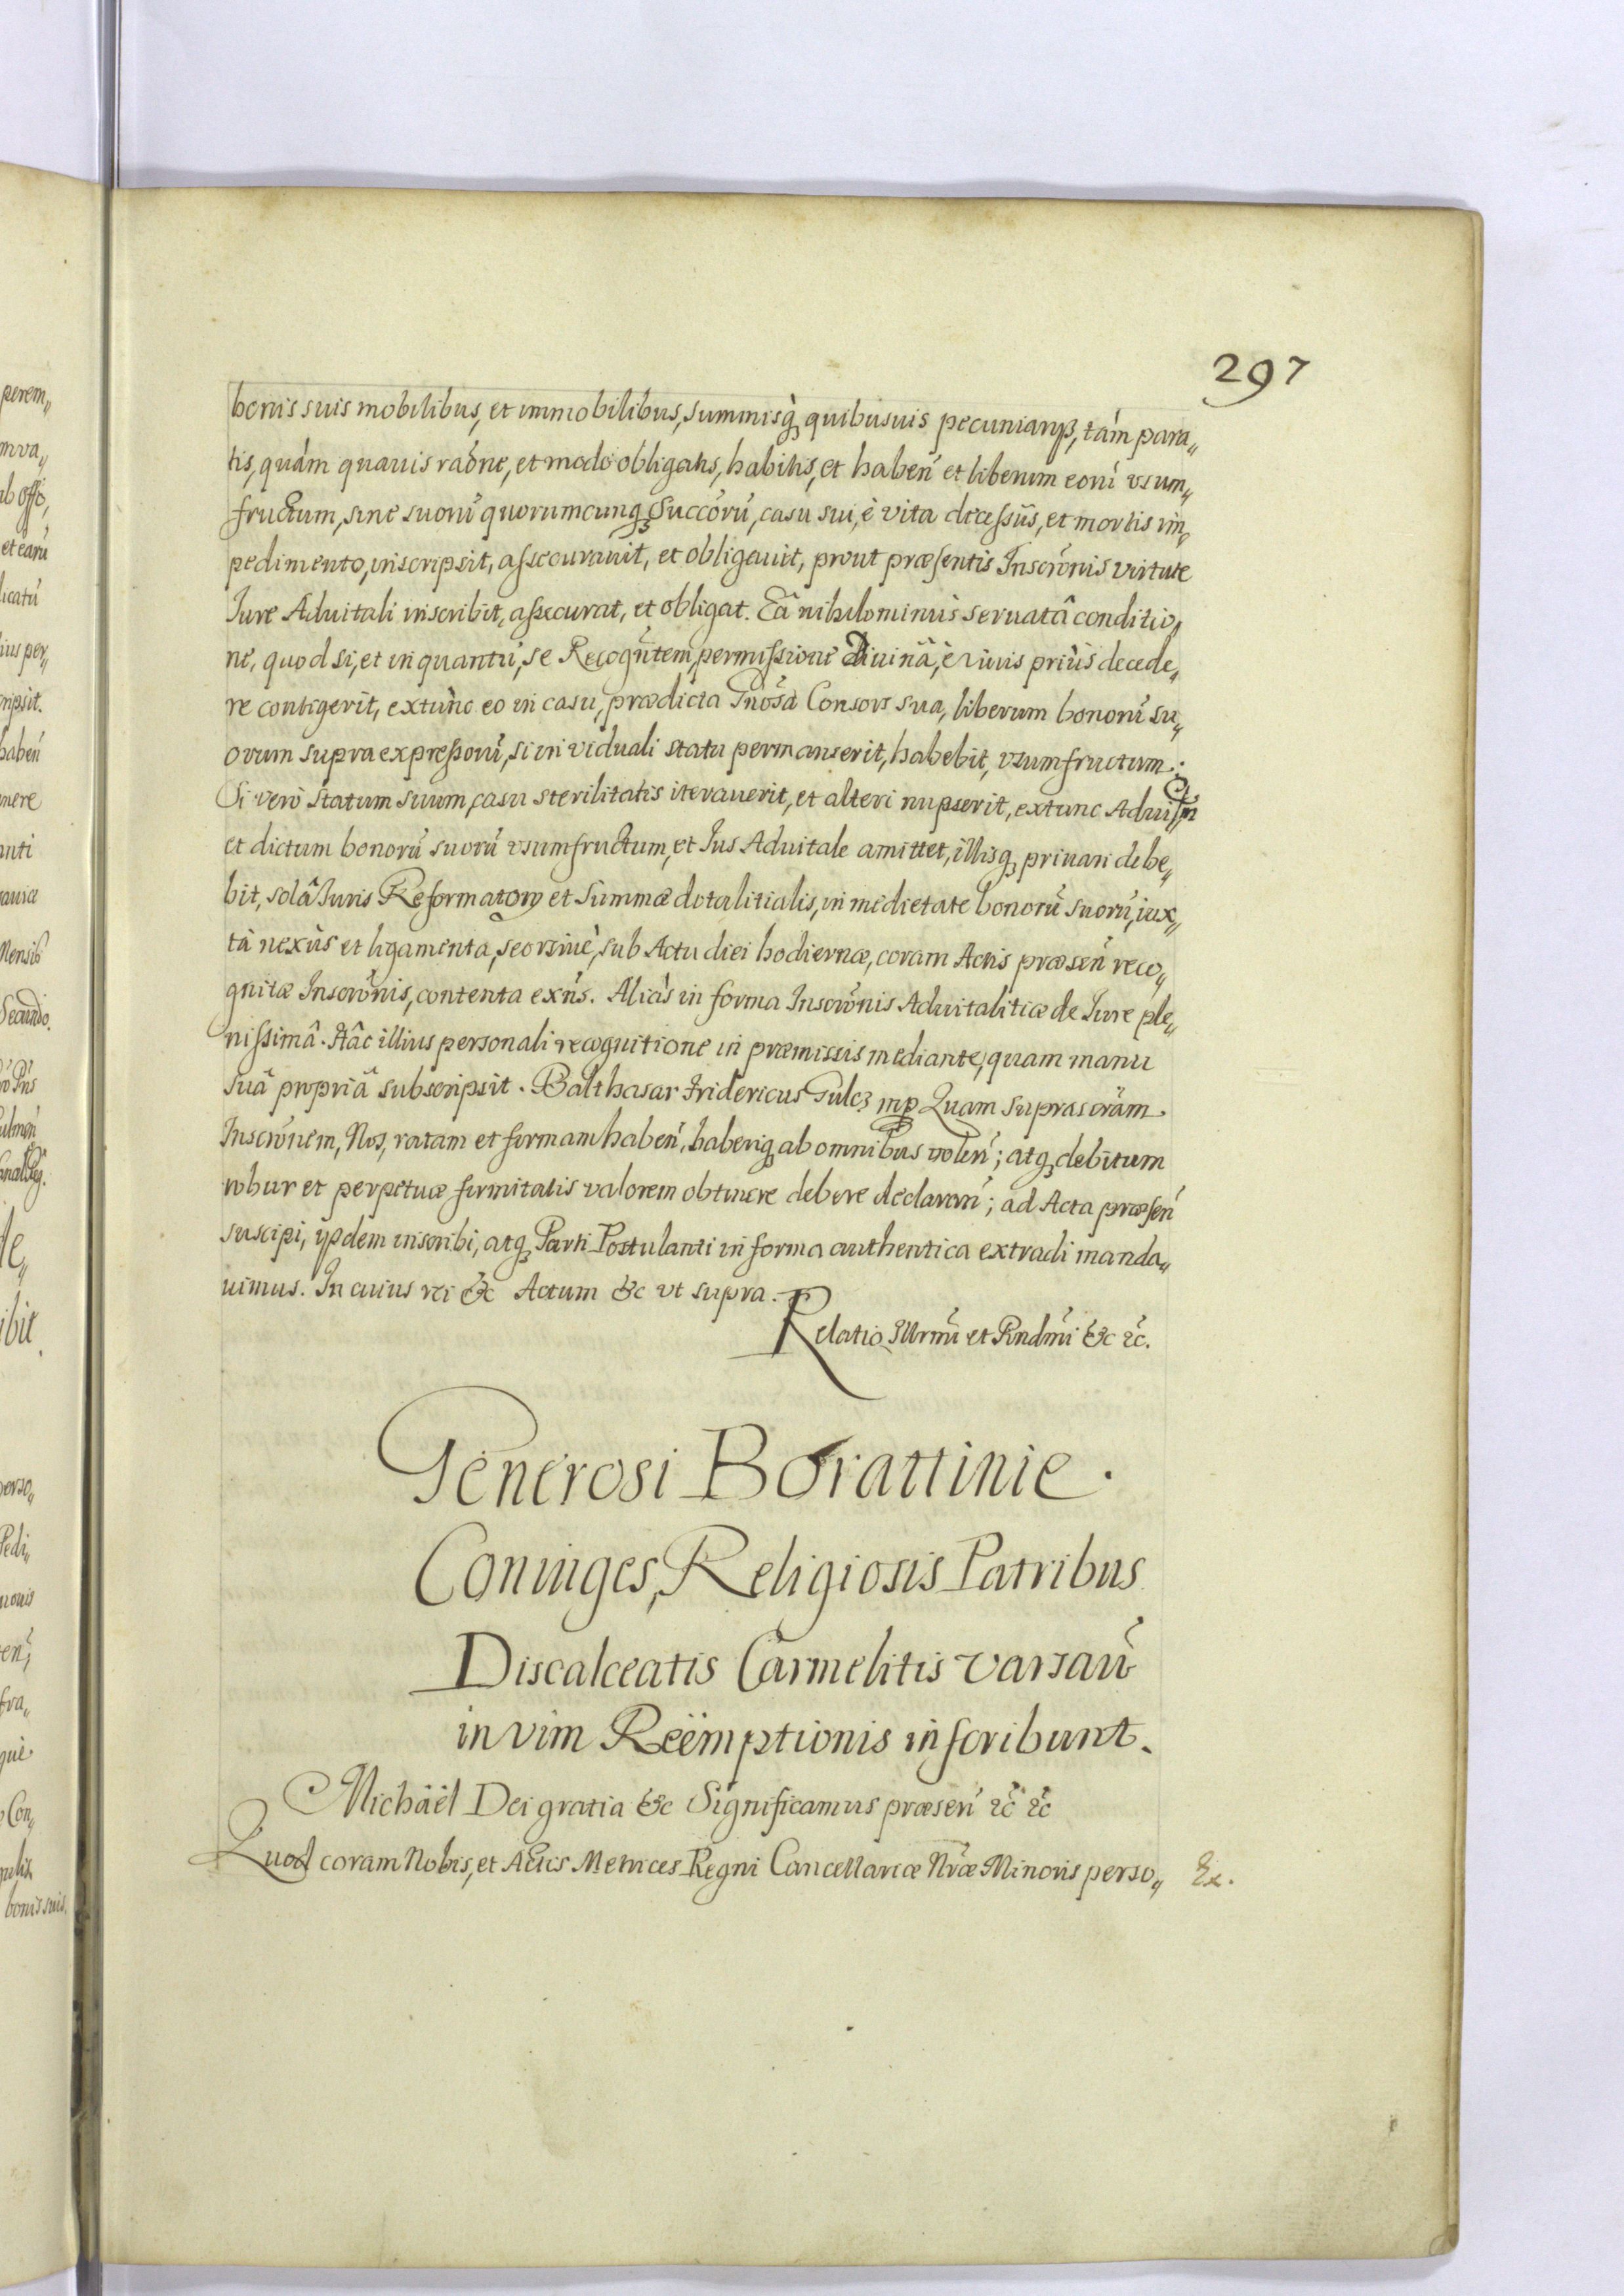 297
bonis suis mobilibus, et immobilibus, summisq́ꝫ quibusuis pecuniarijs, tám para„
tis, quám quauis raõne, et modo obligatis, habitis, et habeñ et liberum eorũ vsum„
fructum, sine suorũ quorumcunqꝫ Succõrũ, casu sui, è vita decessûs, et mortis im„
pedimento, inscripsit, assecurauit, et obligauit, prout præsentis Inscrõnis virtute
Iure Aduitali inscribit, assecurat, et obligat. Eâ nihilominùs seruatâ conditio„
ne, quod si, et in quantũ, se Recogñtem, permissione Diuinâ, è viuis priùs decede„
re contigerit, extùnc eo in casu, prædicta Gñosa Consors sua, liberum bonorũ su„
orum supra expressorũ, si in viduali statu permanserit, habebit, vsumfructum.
Si verò statum suum, casu sterilitatis iterauerit, et alteri nupserit, extunc Aduitm̃
et dictum bonorũ suorũ vsumfructum, et Ius Aduitale amittet, illisqꝫ priuari debe„
bit, solâ Iuris Reformatorij et Summæ dotalitialis, in medietate bonorũ suorũ, iux„
tà nexùs et ligamenta, seorsiuè, sub Actu diei hodiernæ, coram Actis præseñ reco„
gnitæ Inscrõnis, contenta exñs. Aliàs in forma Inscrõnis Aduitalitiæ de Iure ple„
nissimâ. Hâc illius personali recognitione in præmissis mediante, quam manu
suâ propriâ subscripsit. Balthasar Fridericus Gulcz mp Quam suprascrãm
Inscrõnem, Nos, ratam et firmam habeñ, haberiqꝫ ab omnibus voleñ; atqꝫ debitum
robur et perpetuæ firmitatis valorem obtinere debere declarañ; ad Acta præseñ
suscipi, ijsdem inscribi, atqꝫ Parti Postulanti in forma authentica extradi manda„
uimus. In cuius rei &c Actum &c vt supra.
Relatio Illrmĩ et Rndmĩ &c &c.
Generosi Borattinie
Coniuges, Religiosis Patribus
Discalceatis Carmelitis Varsaũ
in vim Reëmptionis inscribunt.
Michäël Dei gratia &c Significamus præseñ &c &c
Quod coram Nobis, et Actis Metrices Regni Cancellariæ Nr̃æ Minoris perso„ Ex.